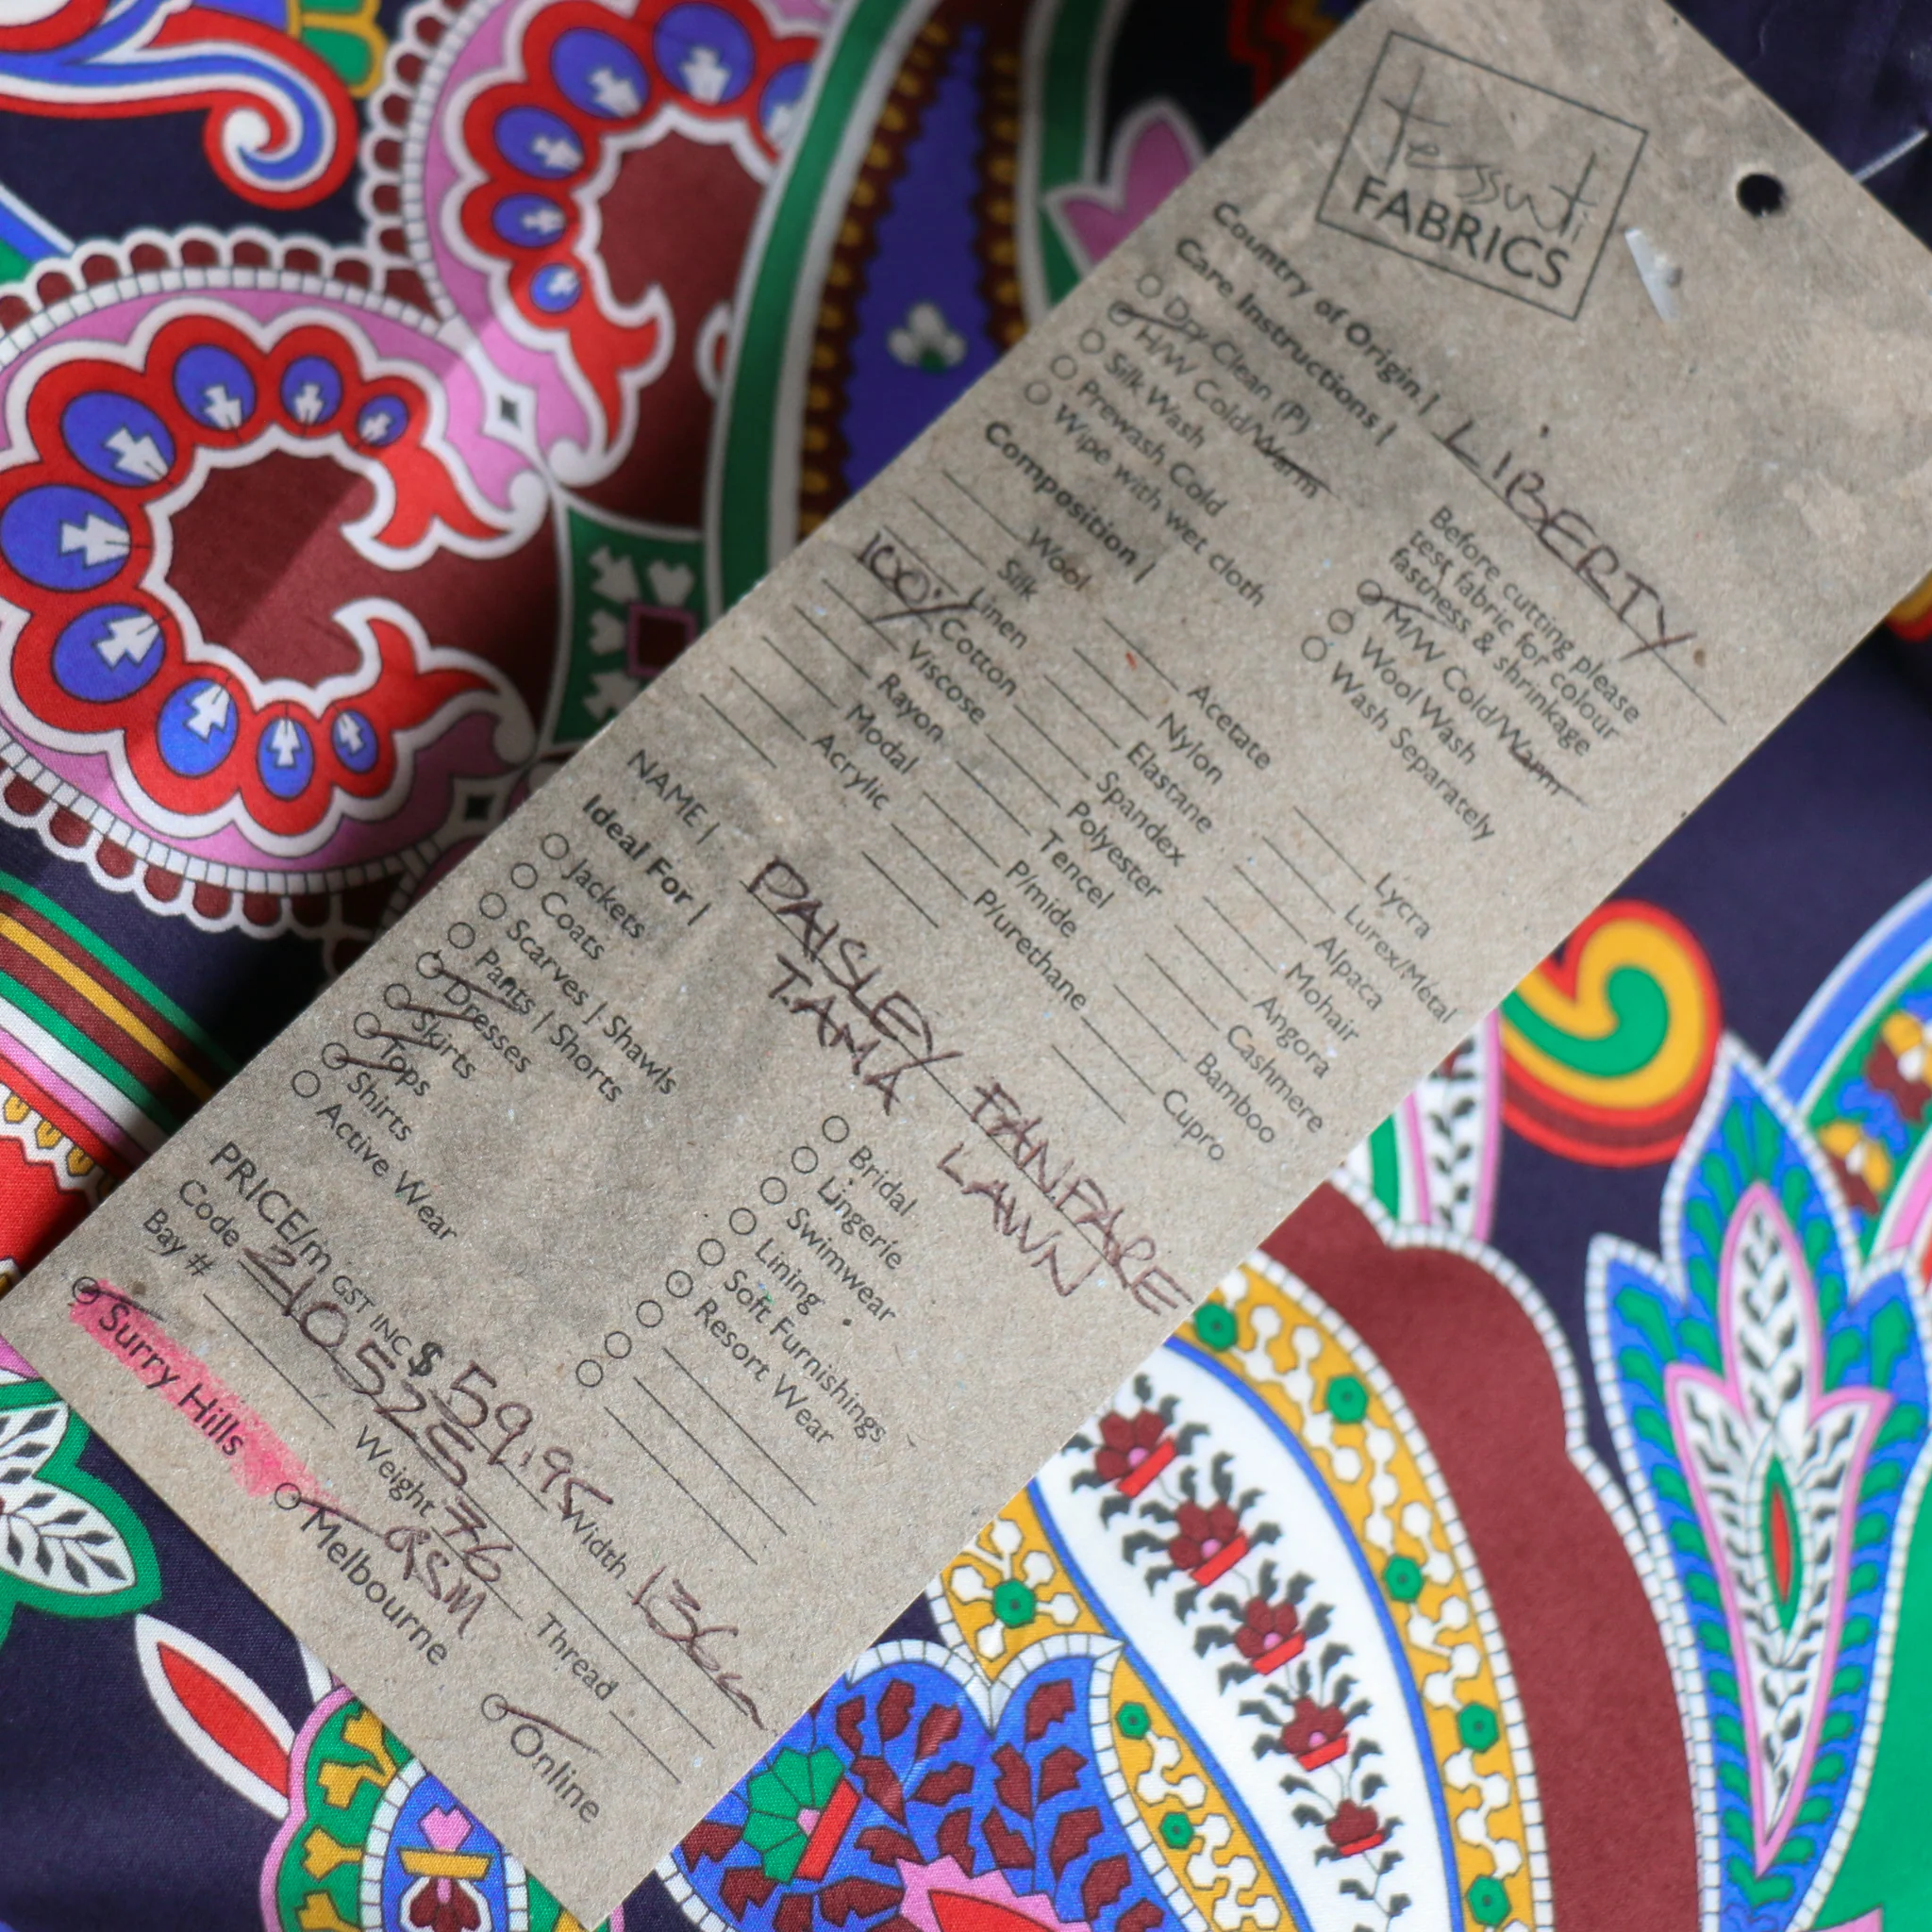 tessuti
FABRICS
Country of Origin | LIBERTY
Care Instructions |
Before cutting please
test fabric for colour
fastness & shrinkage
Dry Clean (P)
H/W Cold/Warm
Silk Wash
Prewash Cold
Wipe with wet cloth
M/W Cold/Warm
Wool Wash
Wash Separately
Composition |
Wool
Silk
Linen
100% Cotton
Viscose
Rayon
Modal
Acrylic
Acetate
Nylon
Elastane
Spandex
Polyester
Tencel
P/mide
P/urethane
Lycra
Lurex/Metal
Alpaca
Mohair
Angora
Cashmere
Bamboo
Cupro
NAME | PAISLEY FANFARE
TAMA LAWN
Ideal For |
Jackets
Coats
Scarves | Shawls
Pants | Shorts
Dresses
Skirts
Tops
Shirts
Active Wear
Bridal
Lingerie
Swimwear
Lining
Soft Furnishings
Resort Wear
PRICE/m GST INC $ 59.95 Width 136cm
Code 210525
Weight 76 GSM
Thread
Bay #
Surry Hills
Melbourne
Online